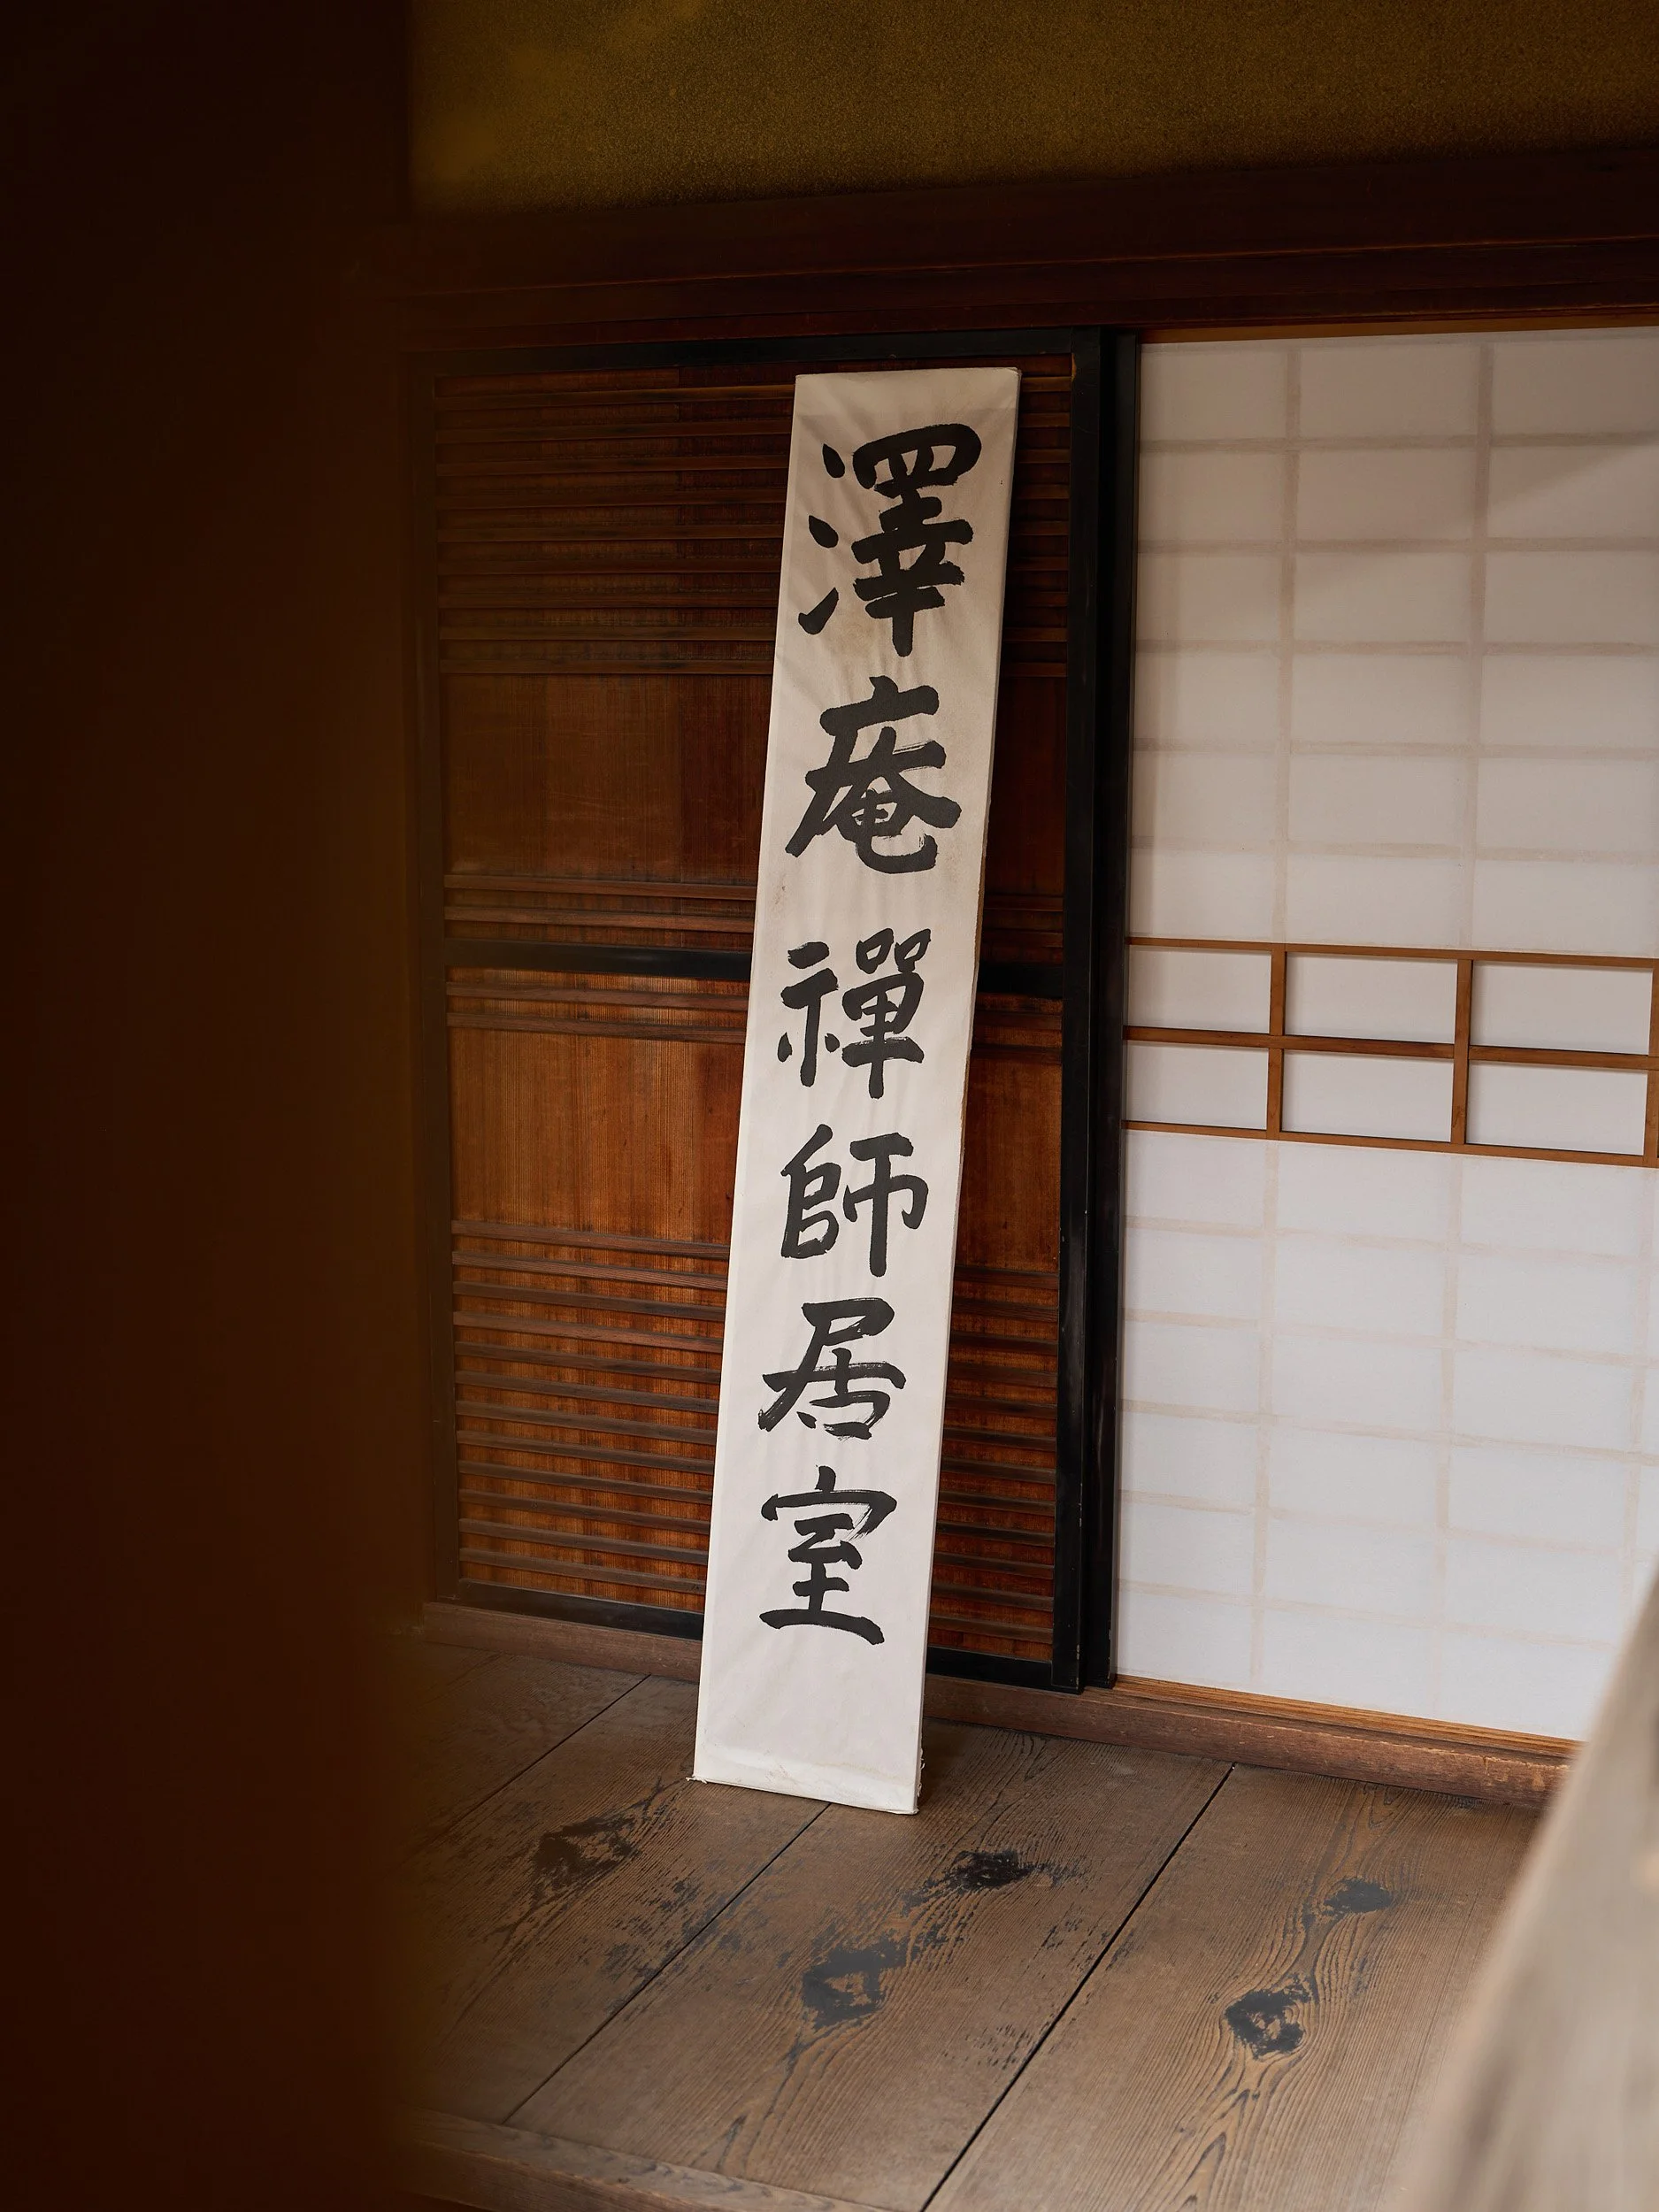 澤庵禪師居室